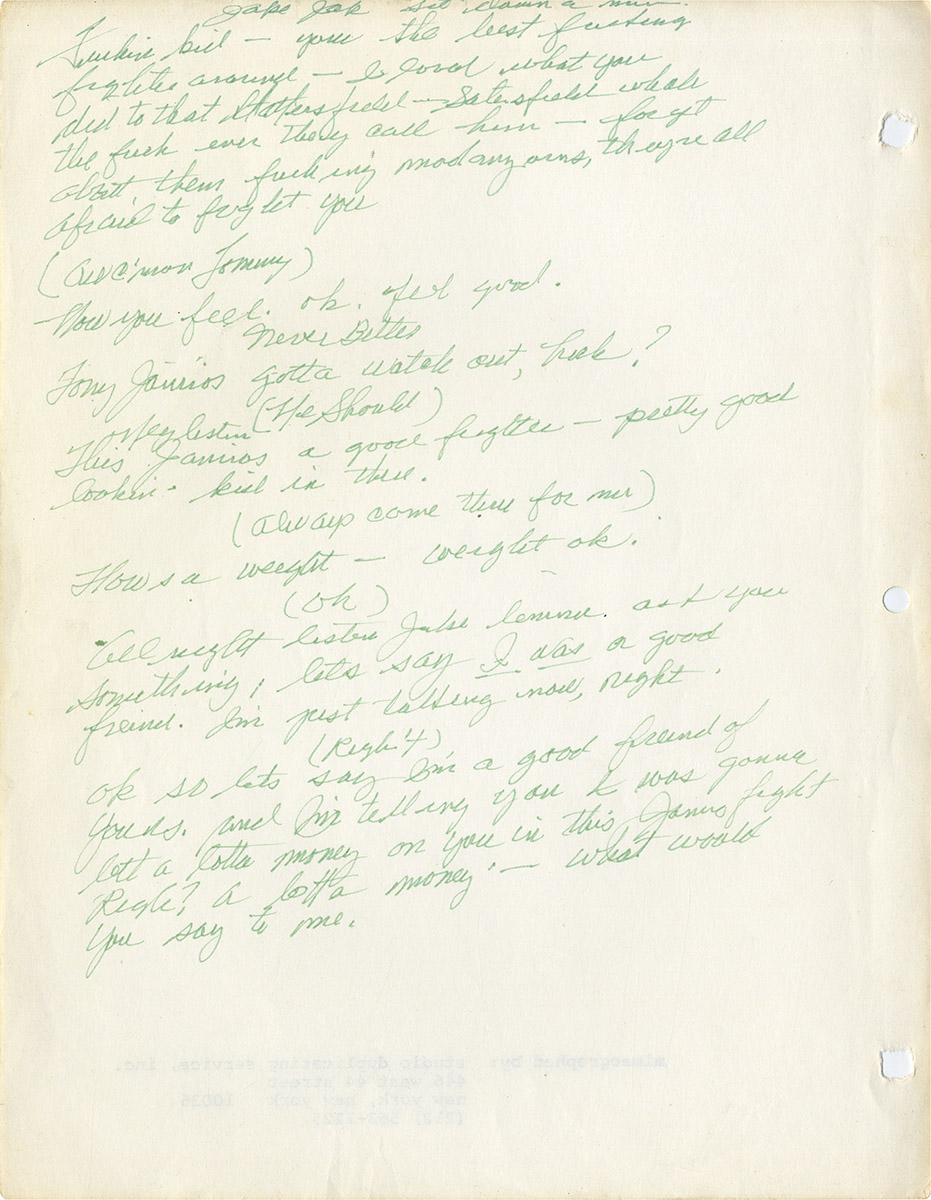 Jake Jak sit down a min.
Fuckin kid — your the best fucking
fighter around — I loved what you
did to that Statersfield — Satersfield whak
the fuck ever they call him — forget
about them fucking modanzanos, they're all
afraid to fight you
(Aw c'mon Tommy)
— How you feel. ok. feel good.
Never Better
Tony Janiros gotta watch out, huh?
(He Should)
Hey listen
This Janiros a good fighter — pretty good
lookin- kid in there.
(Always come thru for me)
How's a weight — weight ok.
(ok)
All right listen Jake lemme ask you
something, lets say I was a good
freind. I'm just talking now, right.
(Righ't)
ok so lets say I'm a good freind of
yours. and I'm telling you I was gonna
bett a lotta money on you in this Janiros fight
Right? A lotta money — what would
you say to me.
mimeographed by: studio duplicating service, inc.
446 west 44 street
new york, new york 10036
(212) 563-1225